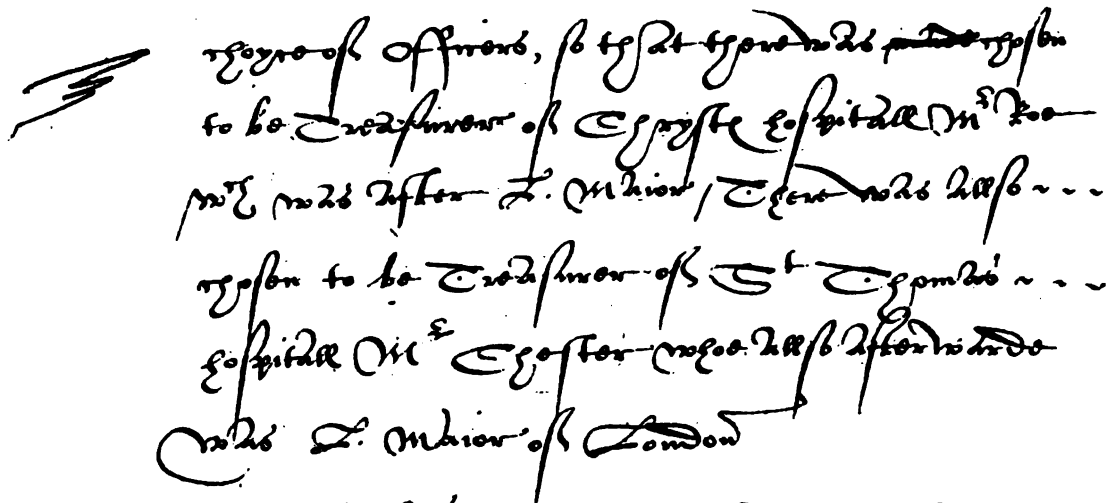 choyce of Officers, so that there was made chosen
to be Treasurer of Chrysts hospitall Mr Roe
wch was after L. Maior / There was allso ~ - -
chosen to be Treasurer of St Thomas ~ - -
hospitall Mr Chester whoe allso afterwarde
was L. Maior of London